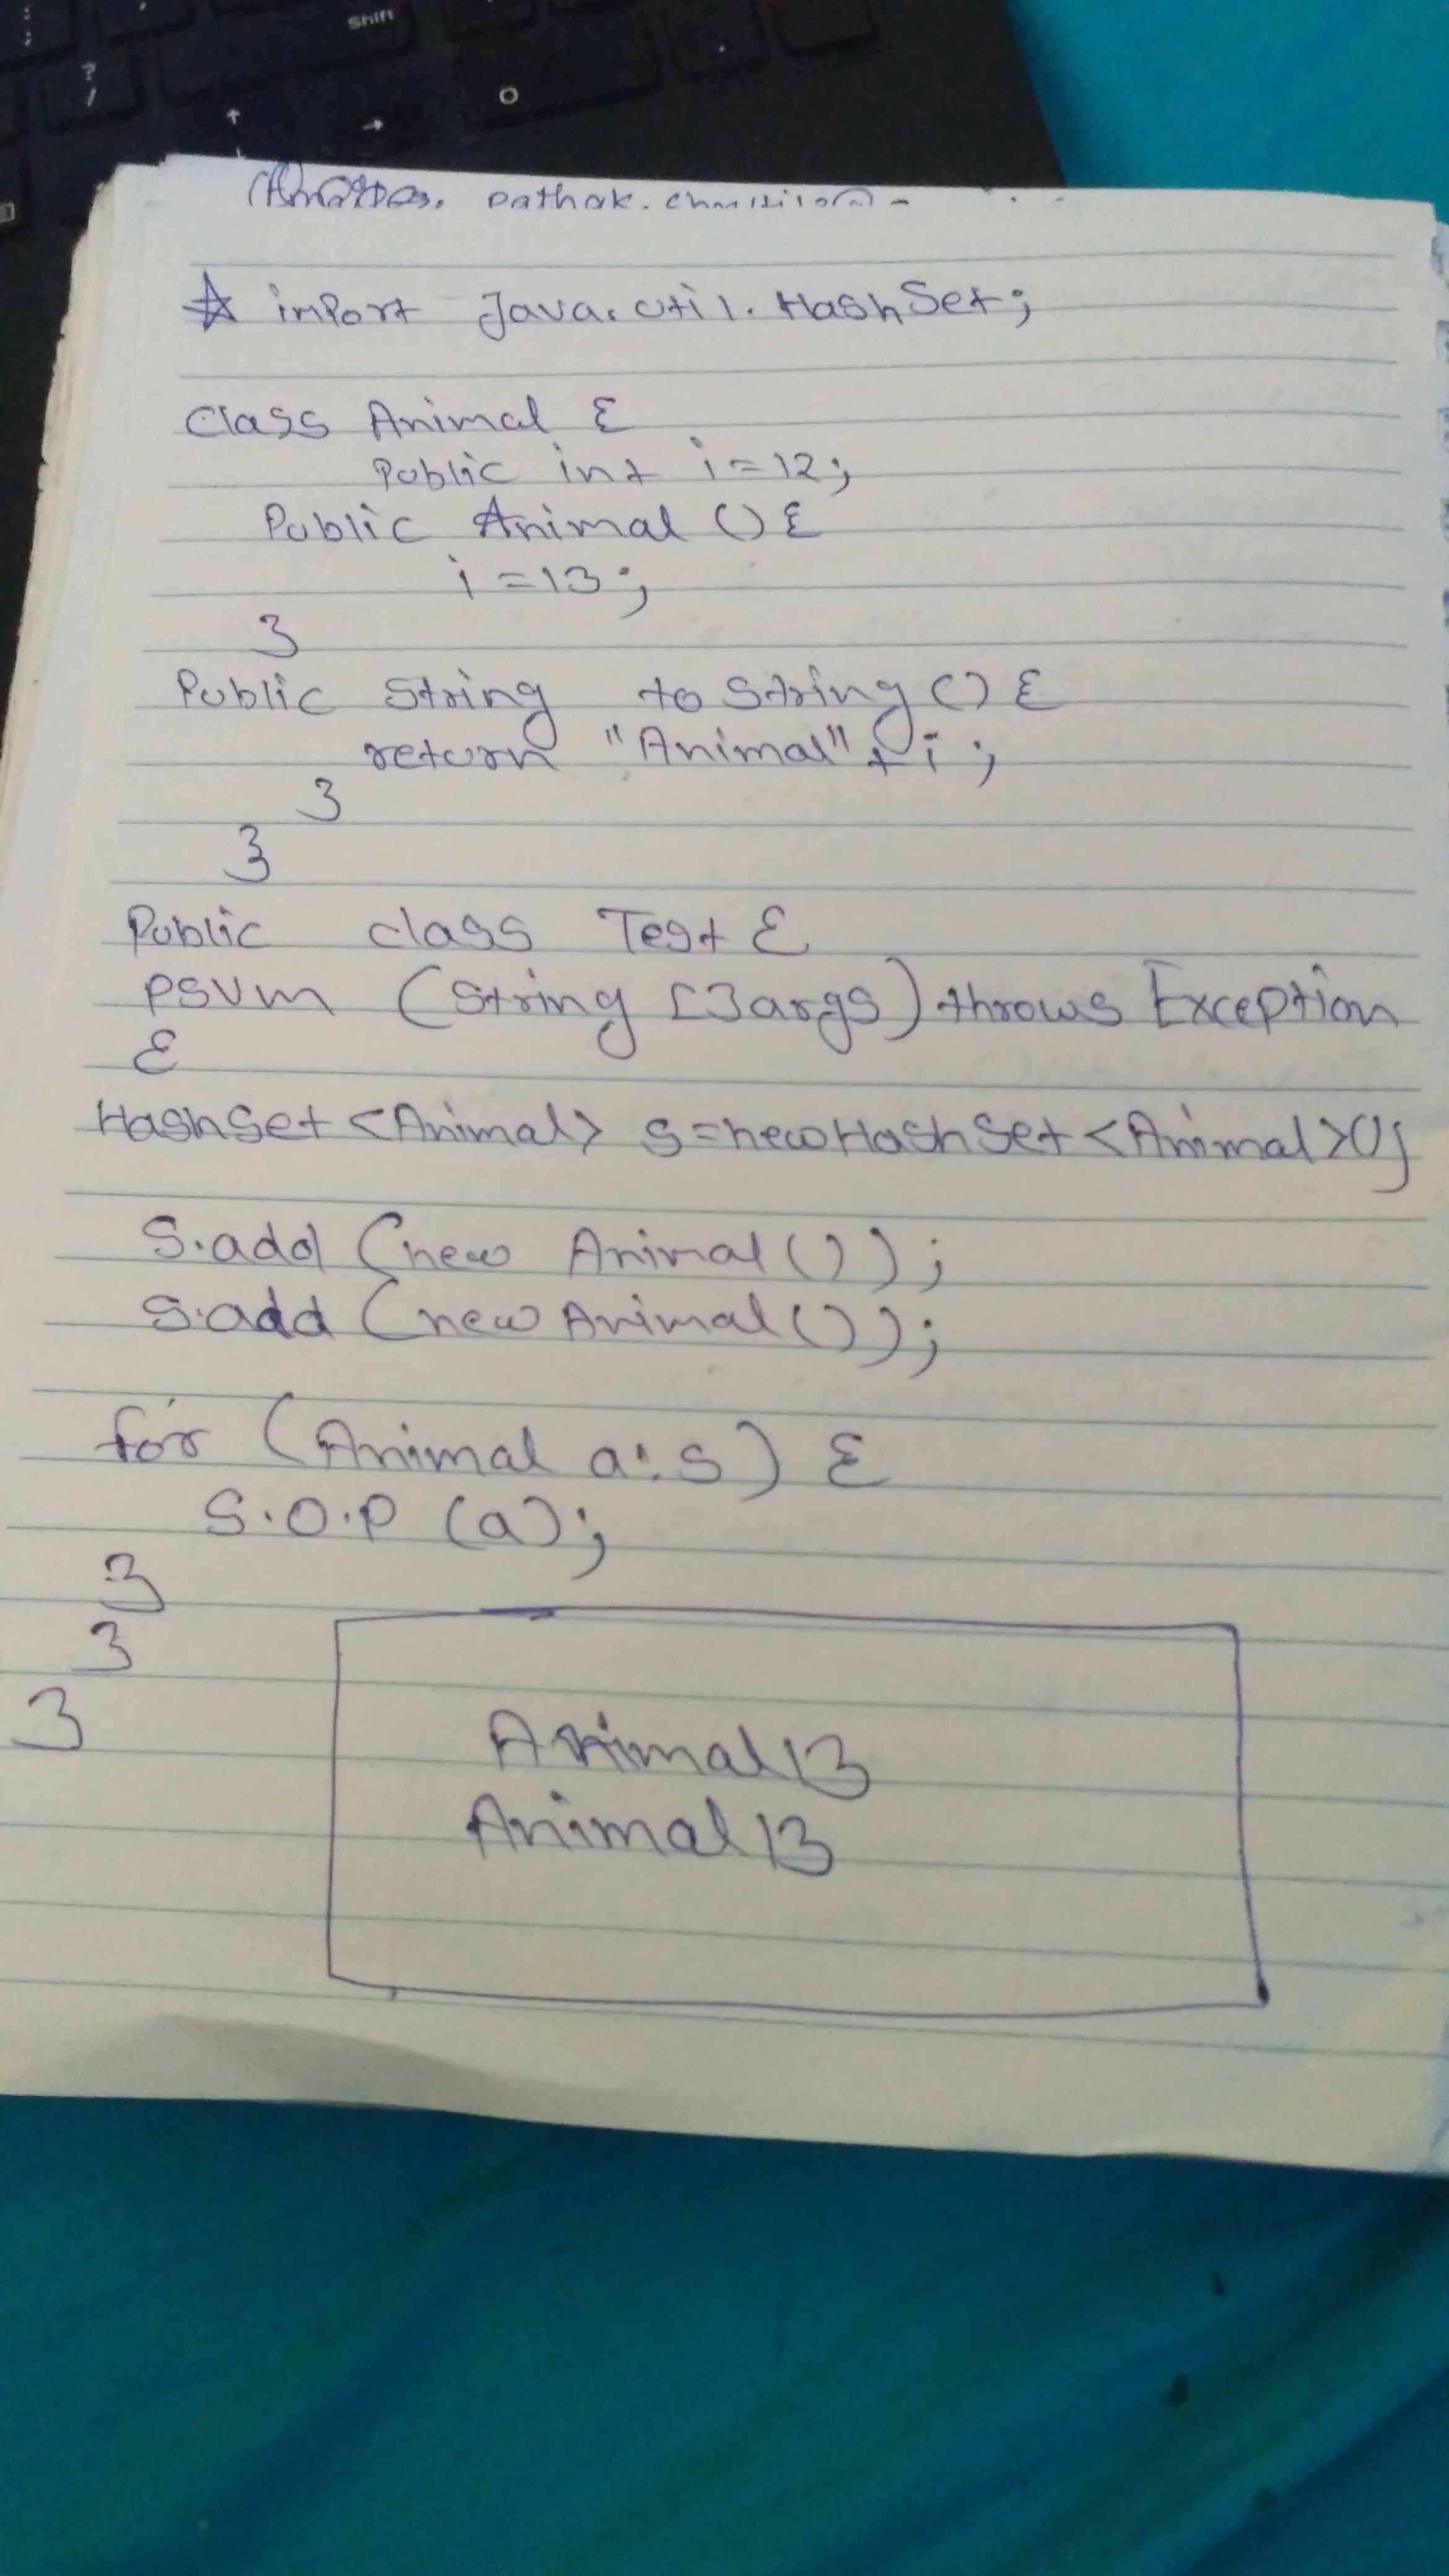 Shift
?
/
pathak.
☆ import Java.util.HashSet;
Class Animal {
Public int i=12;
Public Animal () {
i=13;
}
Public String toString() {
return "Animal"+i;
}
}
Public class Test {
PSVM (String []args) throws Exception
{
HashSet <Animal> s=new HashSet <Animal>();
S.add (new Animal());
S.add (new Animal());
for (Animal a:s) {
S.O.P (a);
}
}
}
Animal13
Animal13